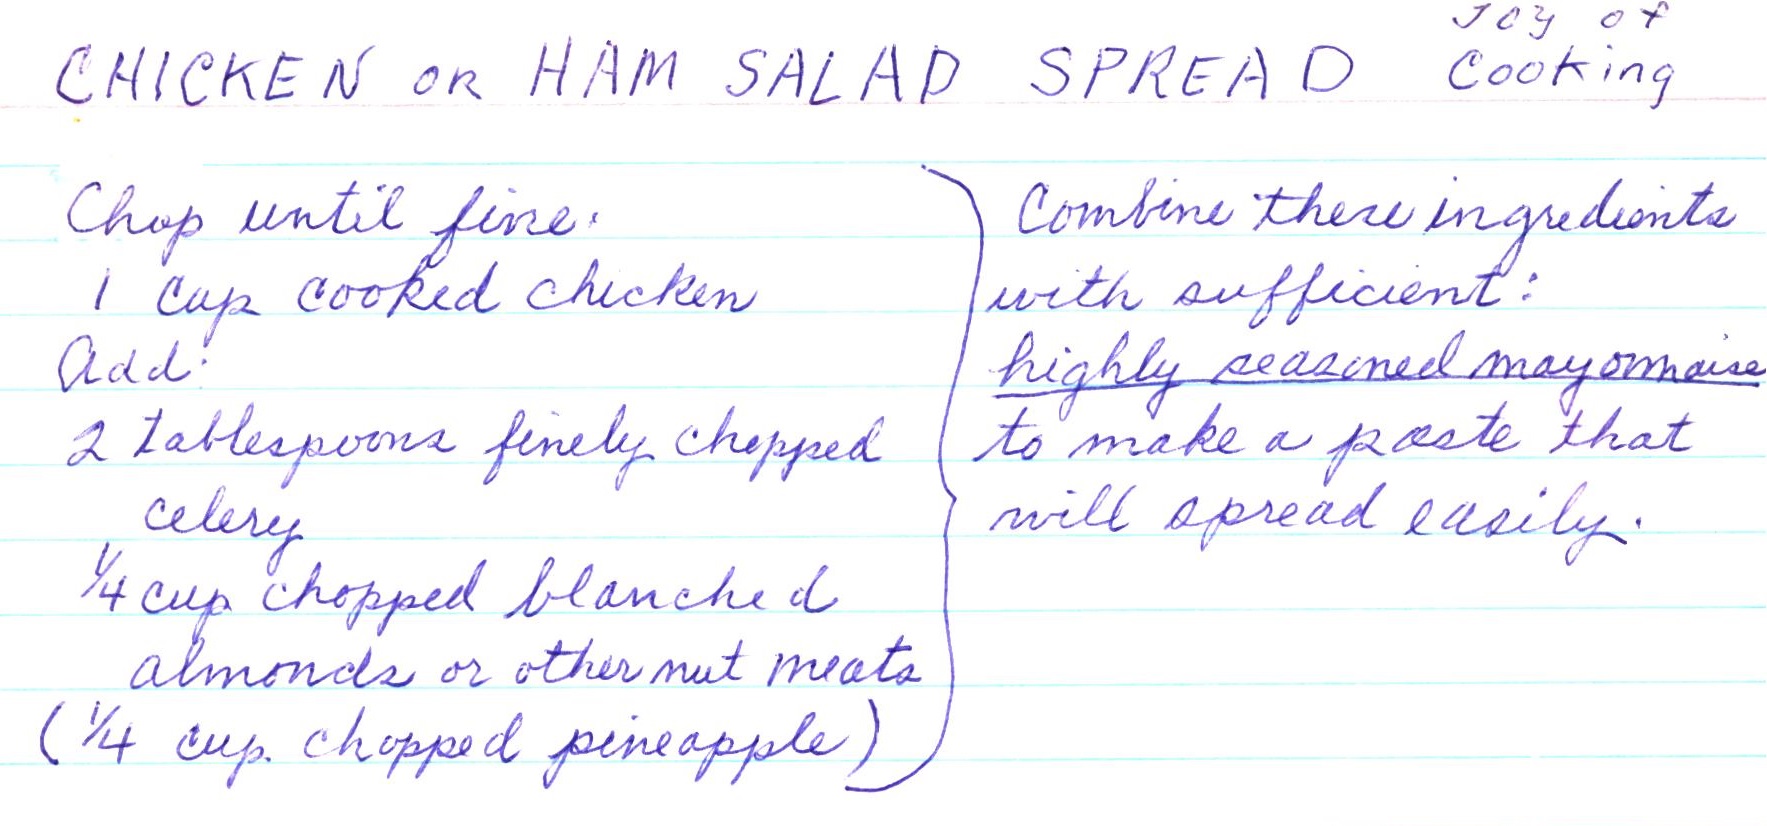 Joy of
CHICKEN OR HAM SALAD SPREAD Cooking
Chop until fine:
1 cup cooked chicken
Add:
2 tablespoons finely chopped
celery
1/4 cup chopped blanched
almonds or other nut meats
(1/4 cup chopped pineapple)
Combine these ingredients
with sufficient:
highly seasoned mayonnaise
to make a paste that
will spread easily.